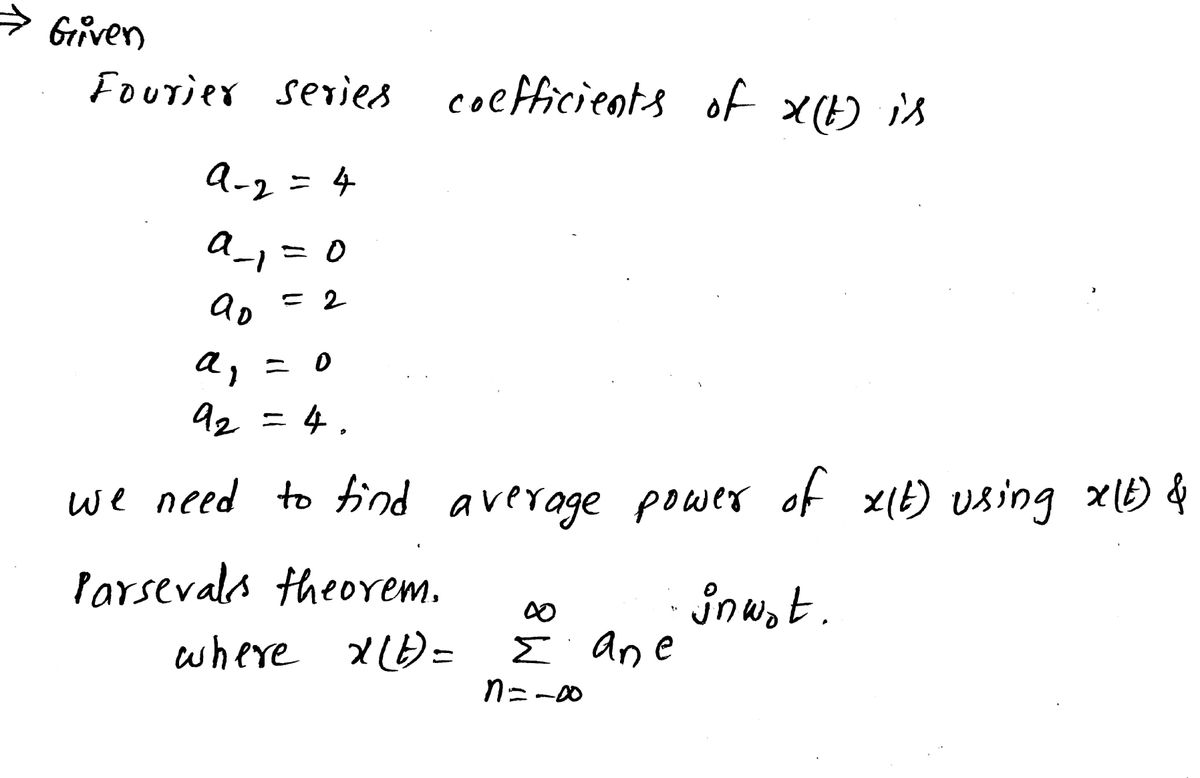 ⇒ Given
Fourier series coefficients of x(t) is
a₋₂ = 4
a₋₁ = 0
a₀ = 2
a₁ = 0
a₂ = 4.
we need to find average power of x(t) using x(t) &
Parsevals theorem.
where x(t) = ∞ Σ n=-∞ aₙ e^jnω₀t.